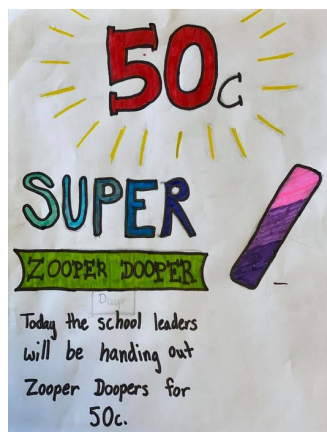 50c
SUPER
ZOOPER DOOPER
Days
Today the school leaders
will be handing out
Zooper Doopers for
50c.